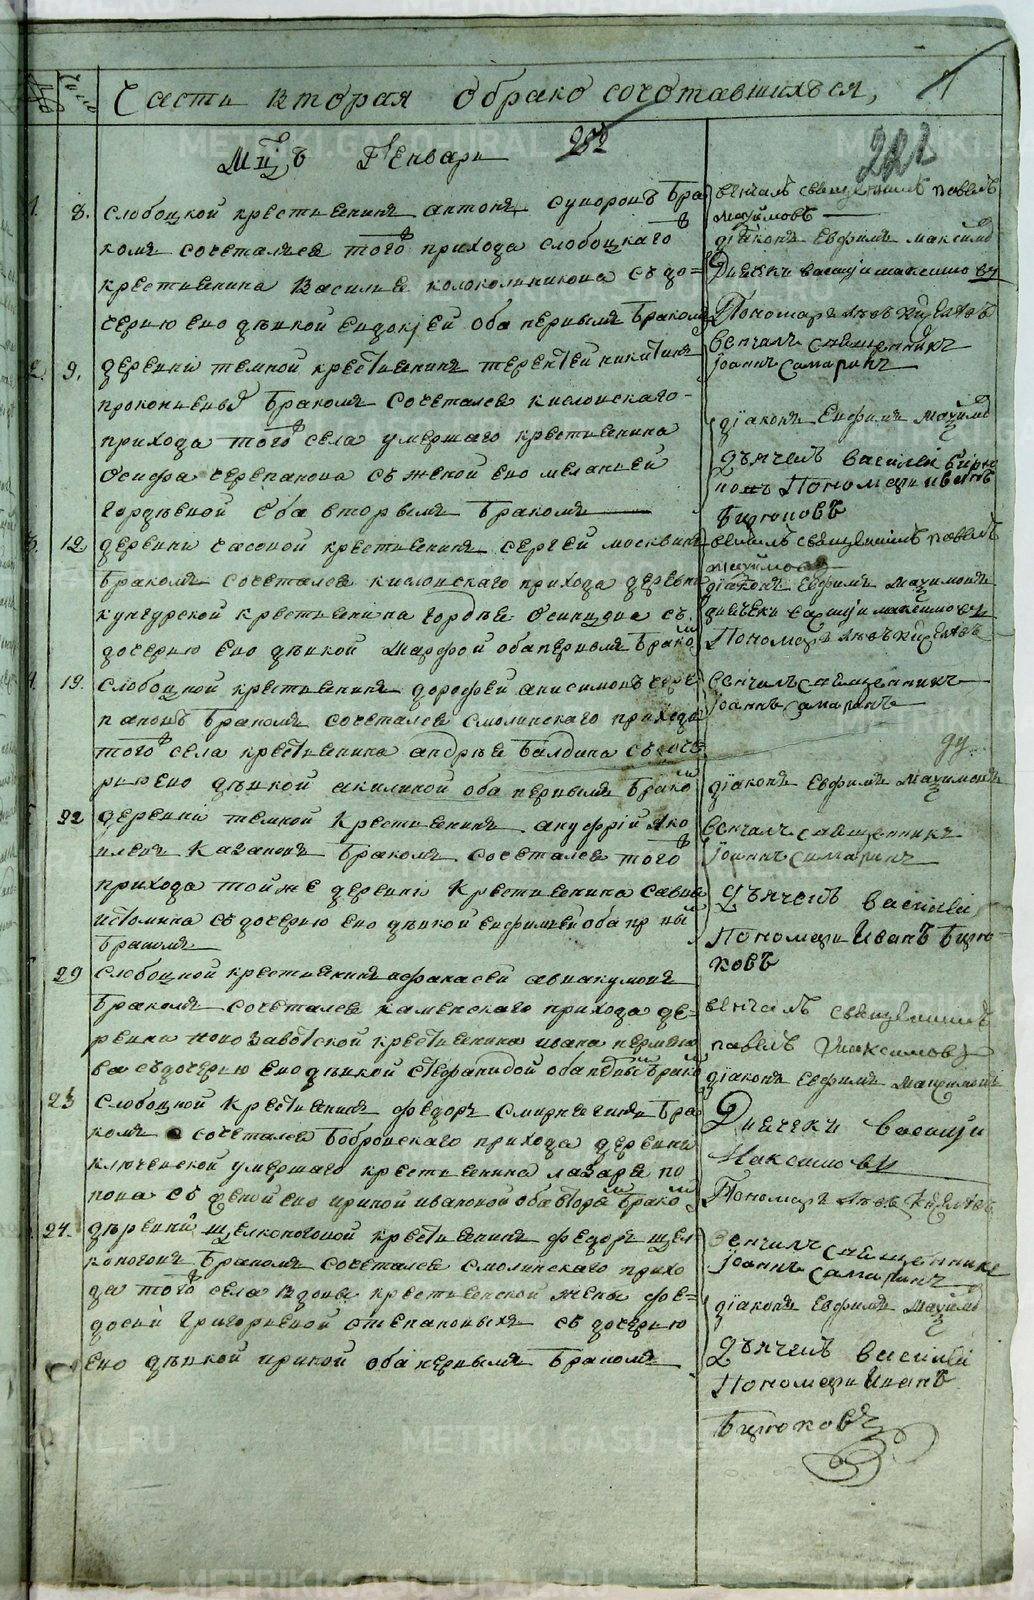 Часть вторая о бракосочетавшихся,
Мцъ Генварь
222
1. 8. слободской крестьянинъ антонъ суворовъ бра
комъ сочетался того прихода слободскаго
крестьянина Василья колокольникова съ до=
черию ево девкой евдокией оба первымъ бракомъ
венчалъ священникъ павелъ
максимовъ
діаконъ Евфимъ максимо
Диячекъ василий максимовъ
Пономарь
2. 9. деревни темной крестьянинъ терентей никитинъ
прокопьевъ бракомъ сочетался кисловскаго
прихода того села умершаго крестьянина
Осифа черепанова съ женой ево меланьей
гордеевной оба вторымъ бракомъ
венчалъ священникъ
іоаннъ самаринъ
діаконъ Евфимъ
дьячекъ василей бирю
ковъ Пономарь иванъ
Бирюковъ
3. 12. деревни часовой крестьянинъ сергей москвинъ
бракомъ сочетался кисловскаго прихода деревни
кунгурской крестьянина гордея Осинцова съ
дочерию ево девкой Марфой оба первымъ брако
венчалъ священникъ павелъ
максимовъ
діаконъ Евфимъ
диячекъ василий максимовъ
Пономарь
4. 19. слободской крестьянинъ дорофей анисимовъ чере
пановъ бракомъ сочетался смолинскаго прихода
того села крестьянина андрея балдина съ доче
рью ево девкой акилиной оба первымъ брако
венчалъ священникъ
іоаннъ самаринъ
діаконъ Евфимъ
22 деревни темной крестьянинъ ануфрій яко
влевъ казановъ бракомъ сочетался того
прихода той же деревни крестьянина савы
истомина съ дочерию ево девкой евфимией оба пр вы
бракомъ
венчалъ священникъ
іоаннъ самаринъ
дьячекъ василей
Пономарь Иванъ Бирю-
ковъ
29 слободской крестьянинъ афанасей аввакумовъ
бракомъ сочетался каменскаго прихода де=
ревни новозаводской крестьянина ивана
ва съ дочерию ево девкой стефанидой оба
венчалъ священникъ
павелъ Максимовъ
діаконъ Евфимъ
23 слободской крестьянинъ федоръ бра
комъ сочетался бобровскаго прихода деревни
ключевской умершаго крестьянина лазаря по
пова съ женой ево ириной ивановой оба вторы брако
Диячекъ василий
Максимовъ
Пономарь
24. деревни щелконоговой крестьянинъ федоръ щел
коноговъ бракомъ сочетался смолинскаго прихо
да того села вдовы крестьянской жены фе=
досьи григорьевой степановыхъ съ дочерию
ево девкой ириной оба первымъ бракомъ
венчалъ священникъ
іоаннъ самаринъ
діаконъ Евфимъ
дьячекъ василей
Пономарь Иванъ
Бирюковъ